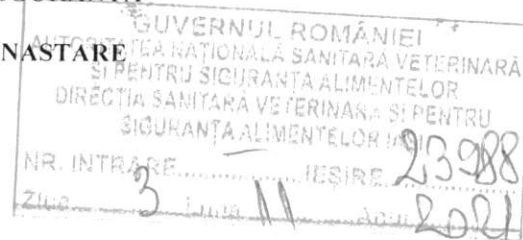 NASTARE
GUVERNUL ROMÂNIEI
AUTORITATEA NAȚIONALĂ SANITARĂ VETERINARĂ
ȘI PENTRU SIGURANȚA ALIMENTELOR
DIRECȚIA SANITARĂ VETERINARĂ ȘI PENTRU
SIGURANȚA ALIMENTELOR
NR. INTRARE..............IEȘIRE 23988
Ziua 3 Luna 11 Anul 2021